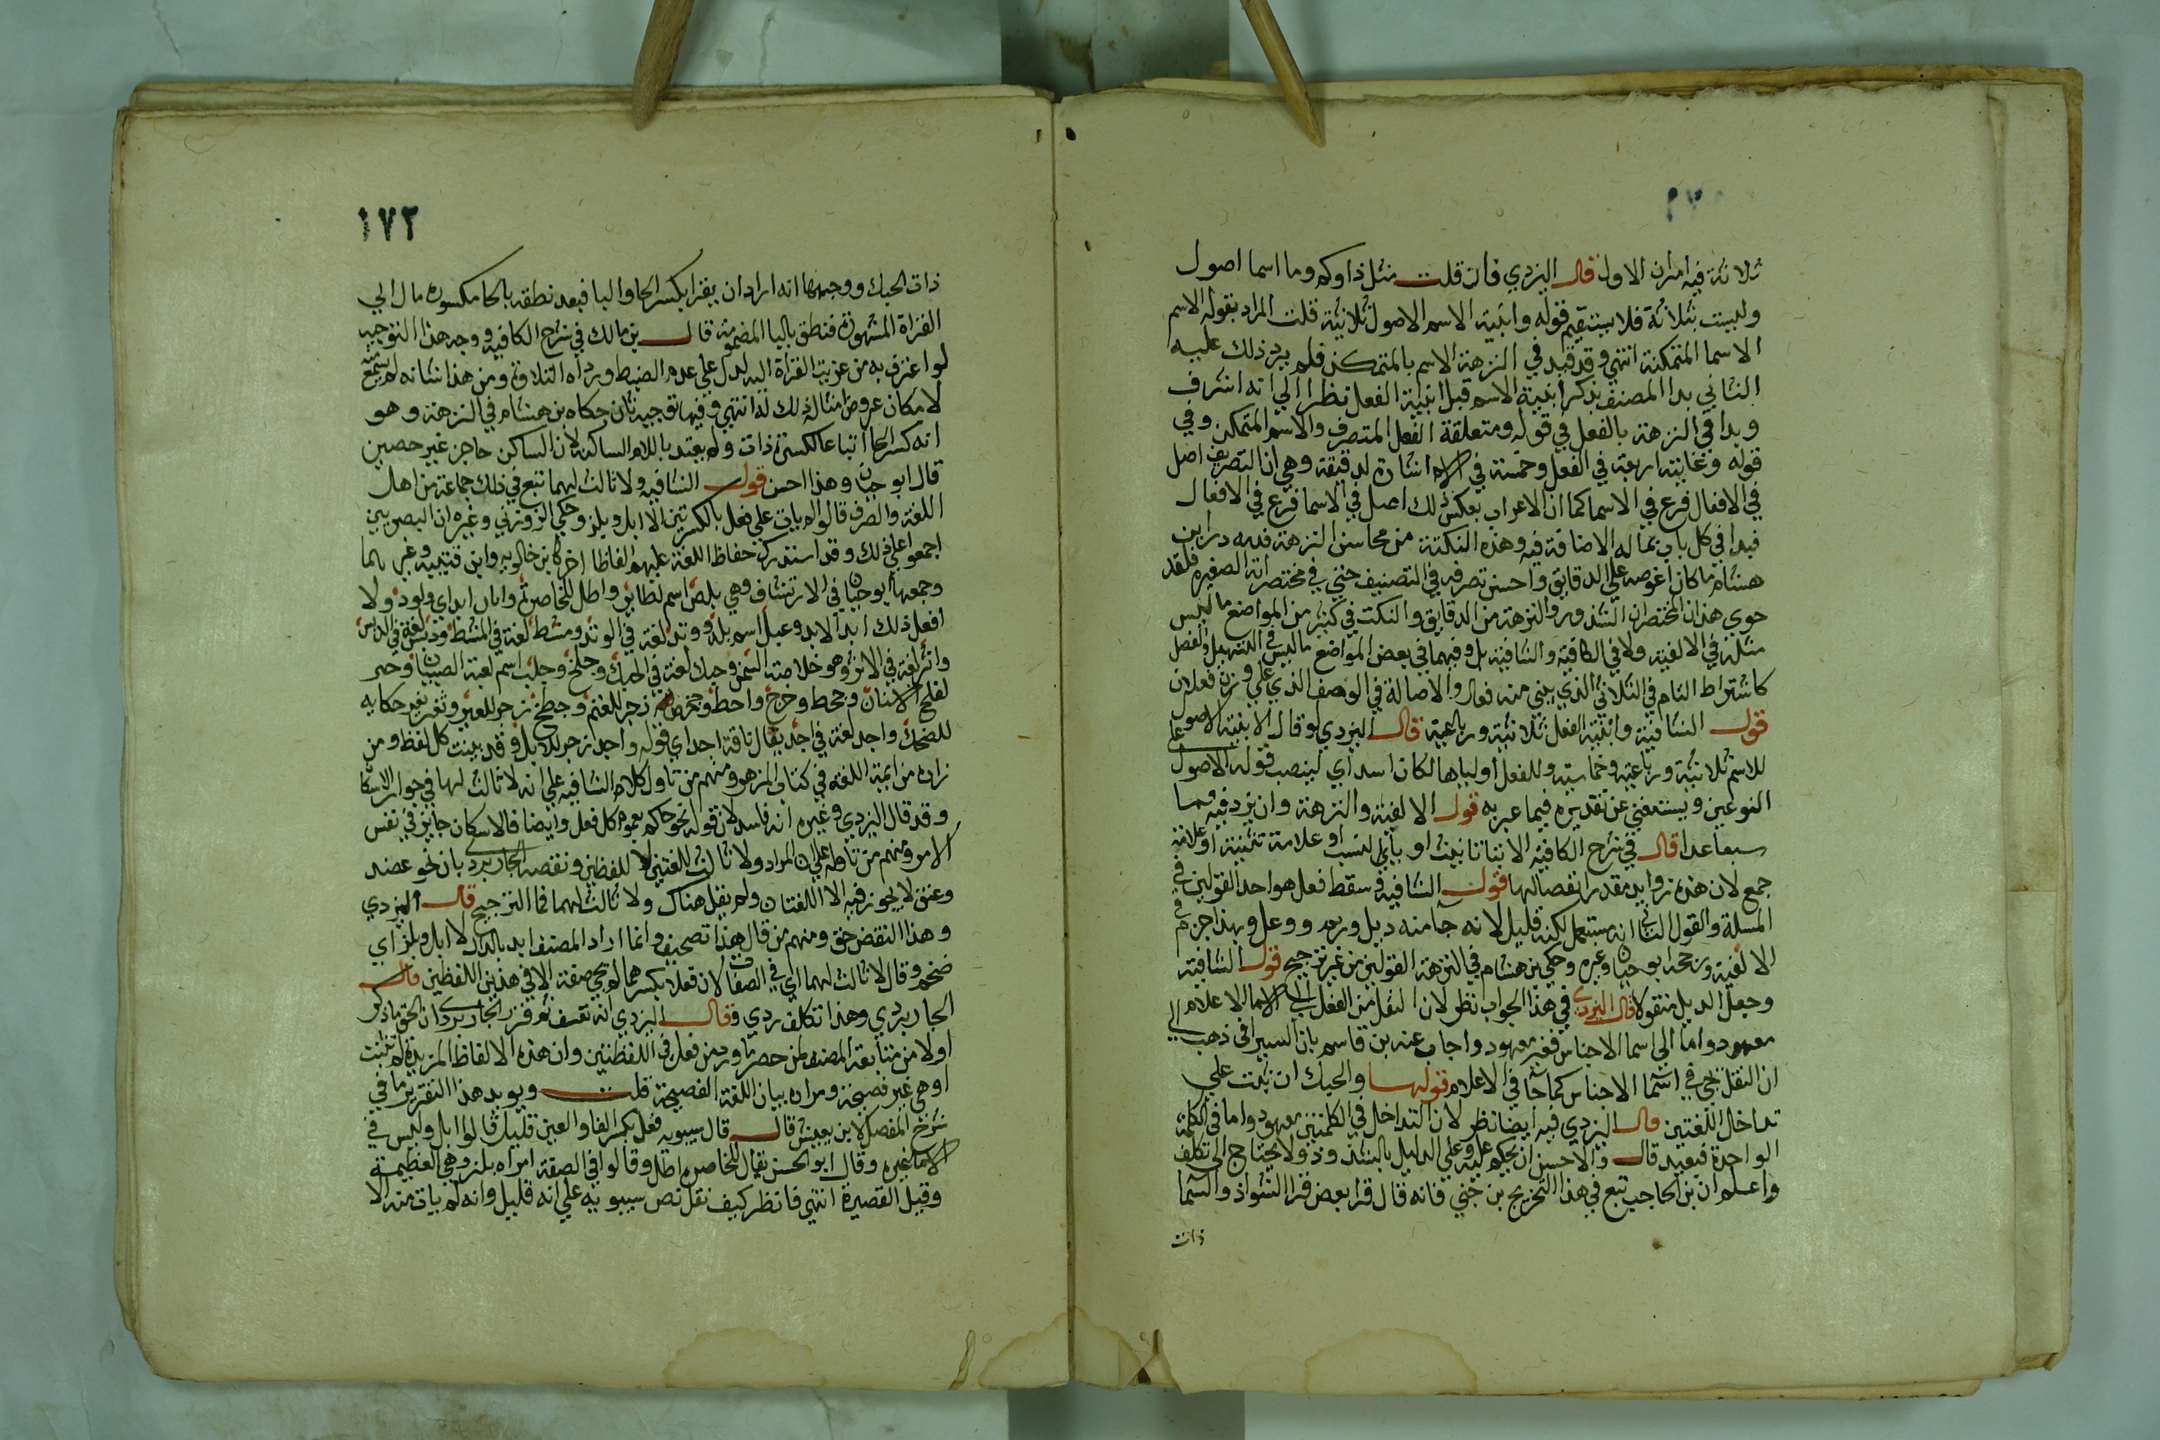 ثلاثة فيه امران الاول قال اليزدي فان قلت مثل ذا وكم وما اسما اصول
وليست بثلاثة فلا يستقيم قوله وابنية الاسم الاصول ثلاثية قلت المراد بقوله الاسم
الاسما المتمكنة انتهي وقد قيد في النزهة الاسم بالمتمكن فلم يرد ذلك عليه
الثاني بدا المصنف بذكر ابنية الاسم قبل ابنية الفعل نظرا الي انه اشرف
وبدا في النزهة بالفعل في قوله ومتعلقة الفعل المتصرف والاسم المتمكن وفي
قوله وغايته اربعة في الفعل وخمسة في الاسم اشارة لدقيقة وهي ان التصريف اصل
في الافعال فرع في الاسما كما ان الاعراب بعكس ذلك اصل في الاسما فرع في الافعال
فبدا في كل باب بما له الاصالة فيه وهذه النكتة من محاسن النزهة فلله در ابن
هشام ما كان اغوصه علي الدقايق واحسن تصرفه في التصنيف حتي في مختصراته الصغيرة فلقد
حوي هذان المختصران الشذور والنزهة من الدقايق والنكت في كثير من المواضع ما ليس
مثله في الالفية ولا في الكافية والشافية بل وفيهما في بعض المواضع ما ليس في التسهيل والفصل
كاشتراط التام في الثلاثي الذي يبني منه فعال والاصالة في الوصف الذي علي وزن فعلان
قول الشافية وابنية الفعل ثلاثية ورباعية قال اليزدي لو قال الابنية الاصول
للاسم ثلاثية ورباعية وخماسية وللفعل اولياها لكان اسد اي لينصب قوله الاصول علي
النوعين ويستغني عن تقديره فيما عبر به قول الالفية والنزهة وان يزد فيه فما
سبعا عدا قال في شرح الكافية الا بتا تانيث او بايي نسب او علامة تثنية او علامة
جمع لان هذه زوايد مقدر انفصالها قول الشافية وسقط فعل هو احد القولين في
المسلة والقول الثاني انه مستعمل لكنه قليل لانه جا منه دبل ورم ووعل وبهذا جزم في
الالفية ورجحه ابو حيان وغيره وحكي بن هشام في النزهة القولين من غير ترجيح قول الشافية
وجعل الديل منقولا قال اليزدي في هذا الجواب نظر لان النقل من الفعل الي الاسما الاعلام
معهود واما الي اسما الاجناس فغير معهود واجاب عنه بن قاسم بان السيرافي ذهب الي
ان النقل يجي في اسما الاجناس كما جا في الاعلام قولها والحبك ان ثبت علي
تداخل اللغتين قال اليزدي فيه ايضا نظر لان التداخل في الكلمتين معهود واما في الكلمة
الواحدة فبعيد قال والاحسن ان يحكم عليه وعلي الدليل بالشذوذ ولا يحتاج الي تكلف
واعلم ان بن الحاجب تبع في هذا التخريج بن جني فانه قال قرا بعض قرا الشواذ والسما
ذات
١٧٢
ذات الحبك ووجهها انه اراد ان يقرا بكسر الحا والبا فبعد نطقه بالحا مكسورة مال الي
القراة المشهورة فنطق بالبا المضمومة قال بن مالك في شرح الكافية ووجه هذا التوجيه
لو اعترف به من عزيت القراة اليه لدل علي عدم الضبط ورداة التلاوة ومن هذا شانه لم يسمع منه
لامكان عروض امثال ذلك له انتهي وفيها توجيه ثان حكاه بن هشام في النزهة وهو
انه كسر الحا اتباعا لكسرة ذات ولم يعتد باللام الساكنة لان الساكن حاجز غير حصين
قال ابو حيان وهذا احسن قول الشافية ولا ثالث لهما تبع في ذلك جماعة من اهل
اللغة والصرف قالوا لم يات علي فعل بالكسرتين الا ابل وبلز وحكي الزوزني وغيره ان البصريين
اجمعوا علي ذلك وقد استدرك حفاظ اللغة عليهم الفاظا اخر كابن خالويه وابن قتيبة وغيرهما
وجمعها ابو حيان في الارتشاف وهي بلص اسم لطاير واطل للخاصرة واتان ابد اي ولود ولا
افعل ذلك ابد الابد وعبل اسم بلد ووتد لغة في الوتد ومشط لغة في المشط ودبس لغة في الدبس
واثر لغة في الاثر وهو خلاصة السمن وحبك لغة في الحبك وجلخ وجلب اسم لعبة الصبيان وحبر
لقلح الاسنان ومحط وخرج واحط وجخض زجر للغنم وجطح زجر للعير وتغر تغر حكاية
للضحك واجد لغة في اجد يقال ناقة اجد اي قوية واجد زجر للابل وقد بينت كل لفظ ومن
زاده من ايمة اللغة في كتاب المزهر ومنهم من تاول كلام الشافية علي انه لا ثالث لها في جواز الاسكان
وقد قال اليزدي وغيره انه فاسد لان قوله نحو حاكم بعموم كل فعل وايضا فالاسكان جايز في نفس
الامر ومنهم من تاوله علي ان المراد ولا ثالث للغتين لا للفظين ونقضه الجاربردي بان نحو عضد
وعنق لا يجوز فيه الا اللغتان ولم يقل هناك ولا ثالث لهما فما الترجيح قال اليزدي
وهذا النقض حق ومنهم من قال هذا تصحيف وانما اراد المصنف ابد بالدال لا ابل وبلز اي
ضخم وقال لا ثالث لهما اي في الصفات لان فعلا بكسرهما لم يجي صفة الا في هذين اللفظين قال
الجاربردي وهذا تكلف ردي وقال اليزدي انه تعسف ثم قرر الجاربردي ان الحق ما ذكر
اولا من متابعة المصنف لمن حصر ما ورد من فعل في اللفظتين وان هذه الالفاظ المزيدة لم تثبت
او هي غير فصيحة ومراده بيان اللغة الفصيحة قلت ويويد هذا التقرير ما في
شرح المفصل لابن يعيش قال قال سيبويه فعل بكسر الفا والعين قليل قالوا ابل وليس في
الاسما غيره وقال ابو الحسن يقال للخاصرة اطل وقالوا في الصفة امراة بلز وهي العظيمة
وقيل القصيرة انتهي فانظر كيف نقل نص سيبويه علي انه قليل وانه لم يات منه الا